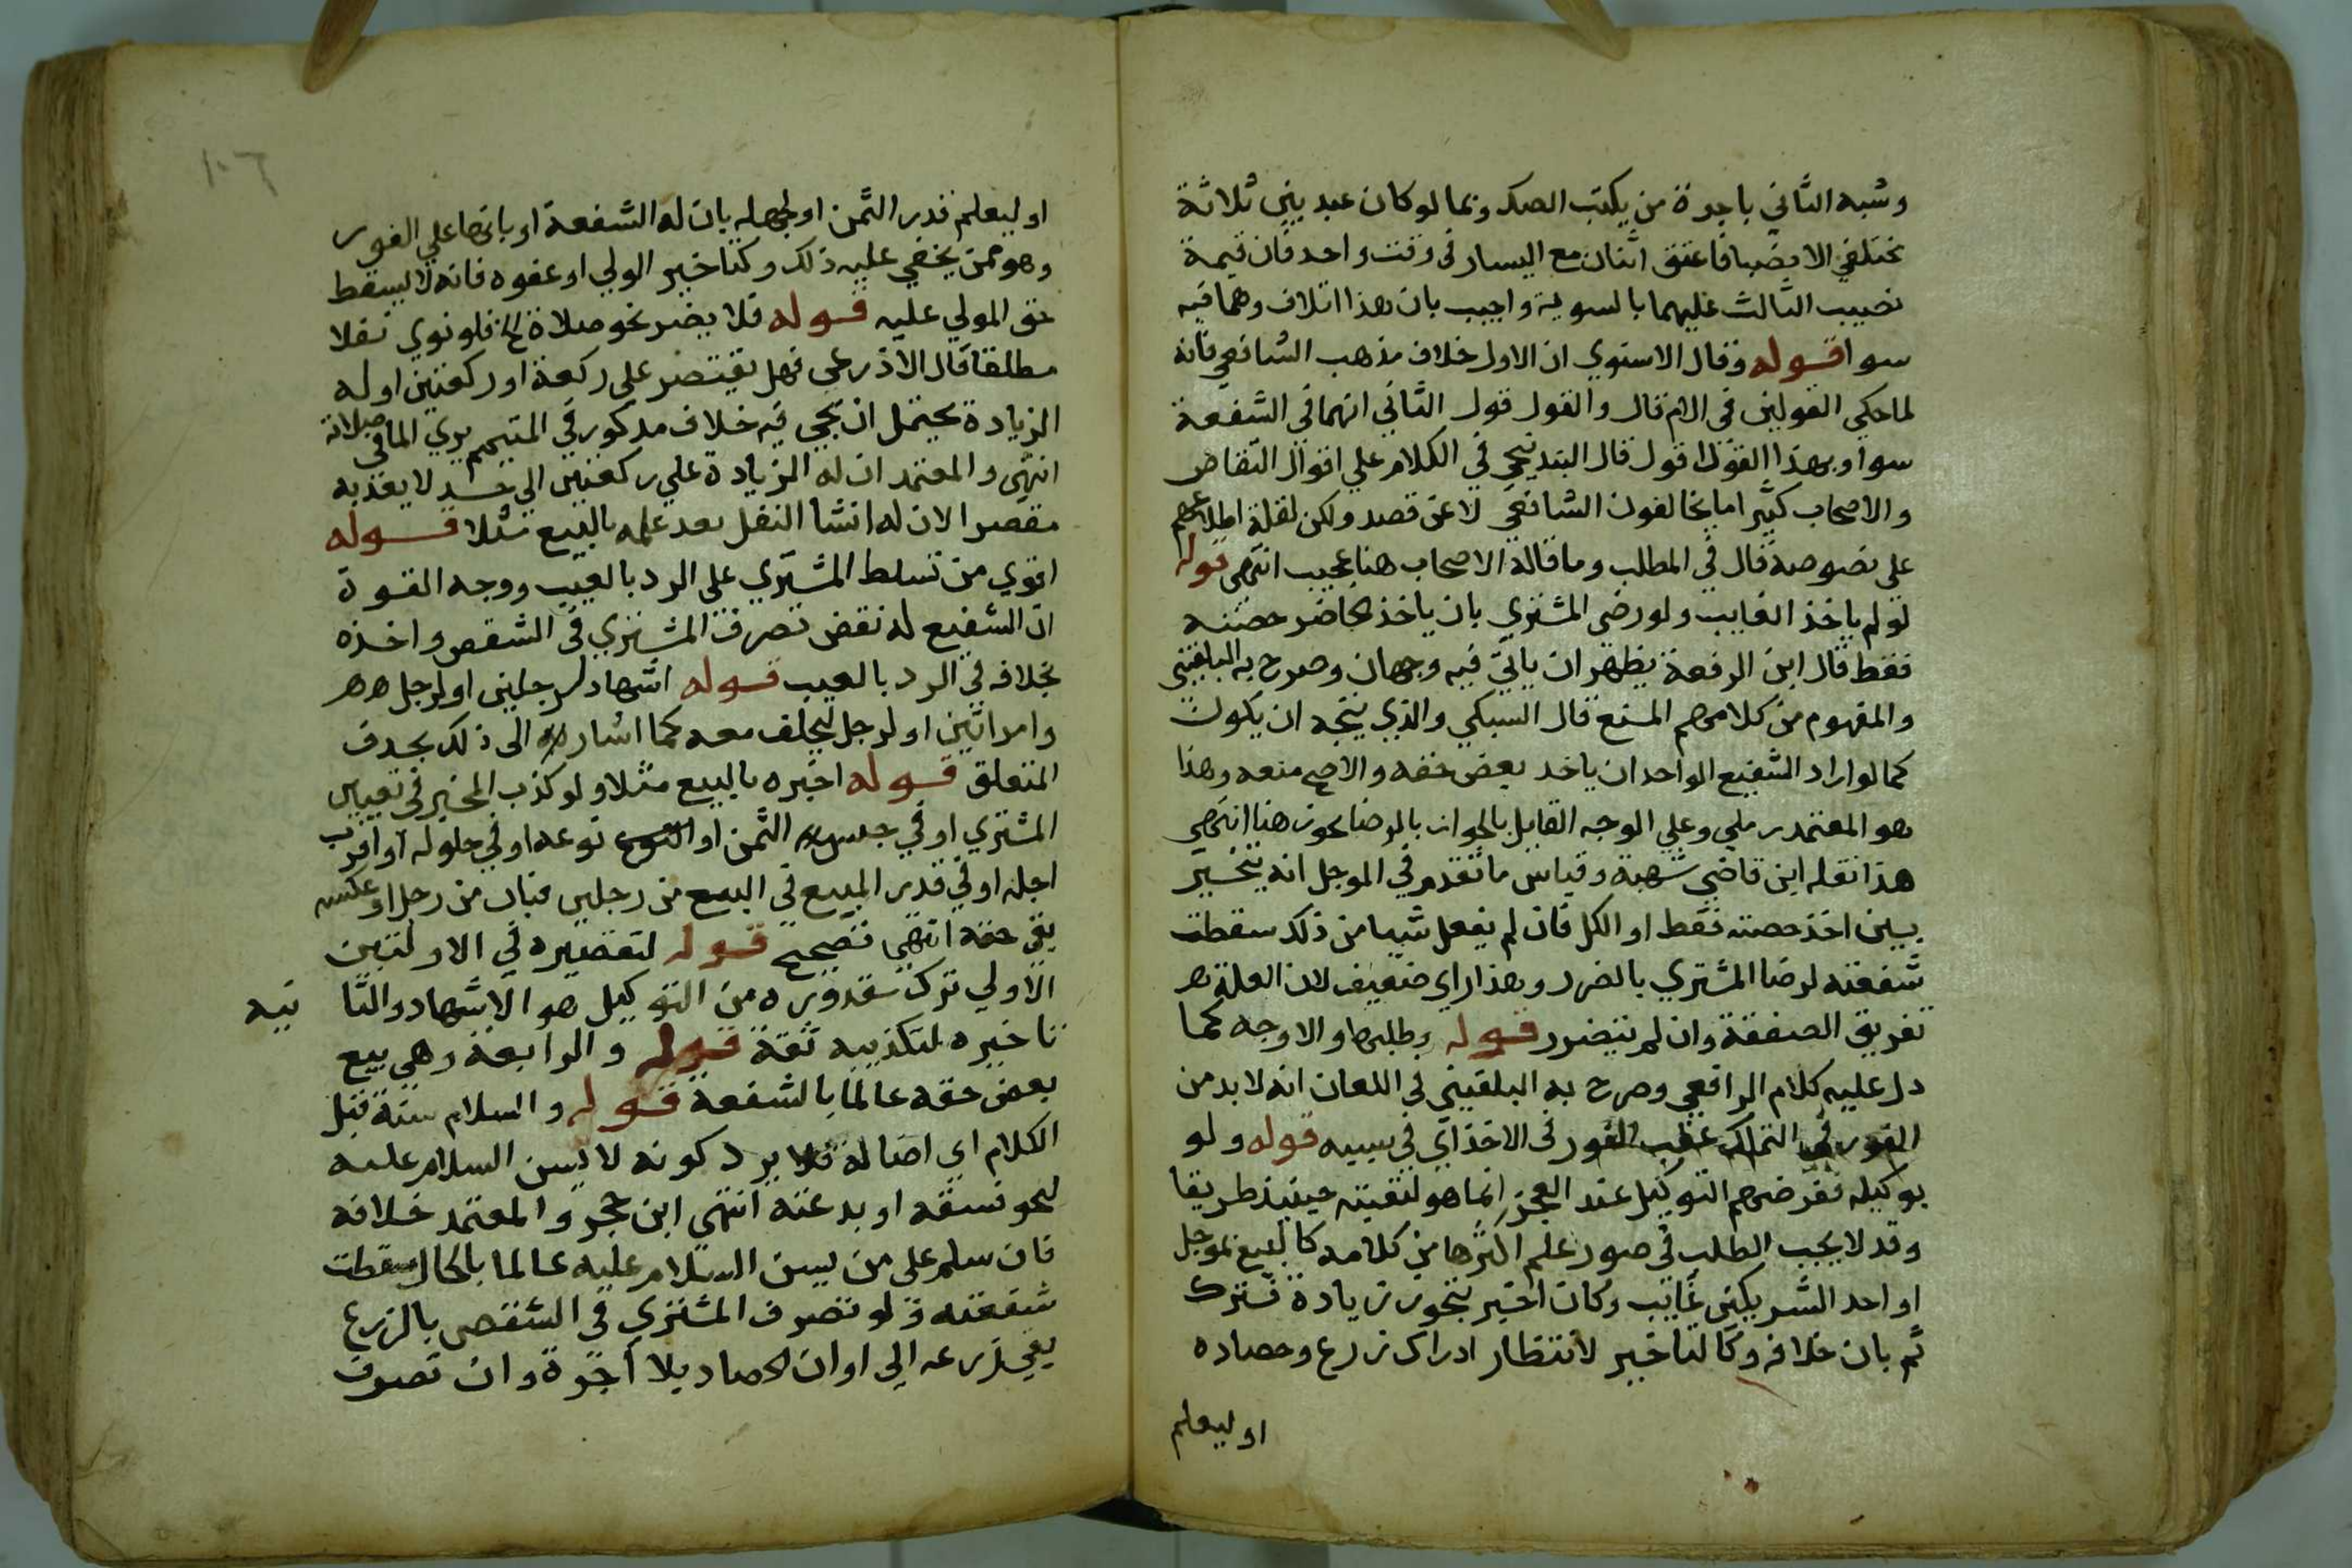 وشبه الثاني باجرة من يكتب الصك وبما لو كان عبد بين ثلاثة
مختلفي الانصبا فاعتق اثنان مع اليسار في وقت واحد فان قيمة
نصيب الثالث عليهما بالسوية واجيب بان هذا اتلاف وهما فيه
سوا قوله وقال الاسنوي ان الاول خلاف مذهب الشافعي فانه
لما حكي القولين في الام قال والقول قول الثاني انهما في الشفعة
سوا وبهذا القول اقول قال البندنيجي في الكلام علي اقوال التقاص
والاصحاب كثيرا ما يخالفون الشافعي لا عن قصد ولكن لقلة اطلاعهم
علي نصوصه قال في المطلب وما قاله الاصحاب هنا عجيب انتهي قوله
لو لم ياخذ الغايب ولو رضي المشتري بان ياخذ الحاضر حصته
فقط قال ابن الرفعة يظهر ان ياتي فيه وجهان وصرح به البلقيني
والمفهوم من كلامهم المنع قال السبكي والذي يتجه ان يكون
كما لو اراد الشفيع الواحد ان ياخد بعض حقه والاصح منعه وهذا
هو المعتمد رملي وعلي الوجه القايل بالجواز بالرضا يجوز هنا انتهي
هذا نقله ابن قاضي شهبة وقياس ما تقدم في الموجل انه يتخير
بين اخذ حصته فقط او الكل فان لم يفعل شيا من ذلك سقطت
شفعته لرضا المشتري بالضرر وهذا راي ضعيف لان العلة هر
تفريق الصفقة وان لم يتضرر قوله وطلبها والاوجه كما
دل عليه كلام الرافعي وصرح به البلقيني في اللعان انه لا بد من
الفور في التملك عقب الفور في الاخذ اي في سببه قوله ولو
بوكيله ففرضهم التوكيل عند العجز انما هو لتعينه حينيذ طريقا
وقد لا يجب الطلب في صور علم اكثرها من كلامه كالبيع بموجل
او احد الشريكين غايب وكان اخير بنحو زيادة فترك
ثم بان خلافه وكالتاخير لانتظار ادراك زرع وحصاده
او ليعلم
١٠٦
او ليعلم قدر الثمن او لجهله بان له الشفعة او بانها علي الفور
وهو ممن يخفي عليه ذلك وكتاخير الولي او عفوه فانه لا يسقط
حق المولي عليه قوله فلا يضر نحو صلاة الخ فلو نوي نفلا
مطلقا قال الاذرعي فهل يقتصر علي ركعة او ركعتين او له
الزيادة يحتمل ان يجي فيه خلاف مدكور في المتيمم يري الما في صلاته
انتهي والمعتمد ان له الزيادة علي ركعتين الي حد لا يعد به
مقصرا لان له انشا النفل بعد علمه بالبيع مثلا قوله
اقوي من تسلط المشتري علي الرد بالعيب ووجه القوة
ان الشفيع له نقض تصرف المشتري في الشقص واخذه
بخلافه في الرد بالعيب قوله اشهاد لرجلين او لرجل هر
وامراتين او لرجل ليحلف معه كما اشار الى ذلك بحدف
المتعلق قوله اخبره بالبيع مثلا ولو كذب المخبر في تعيين
المشتري او في جنس الثمن او نوعه او في حلوله او اقرب
اجله او في قدر المبيع في البيع من رجلين فبان من رجل او عكسه
بقي حقه انتهي تصحيح قوله لتقصيره في الاولتين
الاولي ترك مقدوره من التوكيل هو الاشهاد والثا نيه
تاخيره لتكذيبه ثقة قوله والرابعة وهي بيع
بعض حقه عالما بالشفعة قوله والسلام سنة قبل
الكلام اي اصالة فلا يرد كونه لا يسن السلام عليه
لنحو فسقه او بدعته انتهي ابن حجر والمعتمد خلافه
فان سلم علي من يسن السلام عليه عالما بالحال سقطت
شفعته ولو تصرف المشتري في الشقص بالزرع
بقي زرعه الي اوان الحصاد بلا اجرة وان تصرف